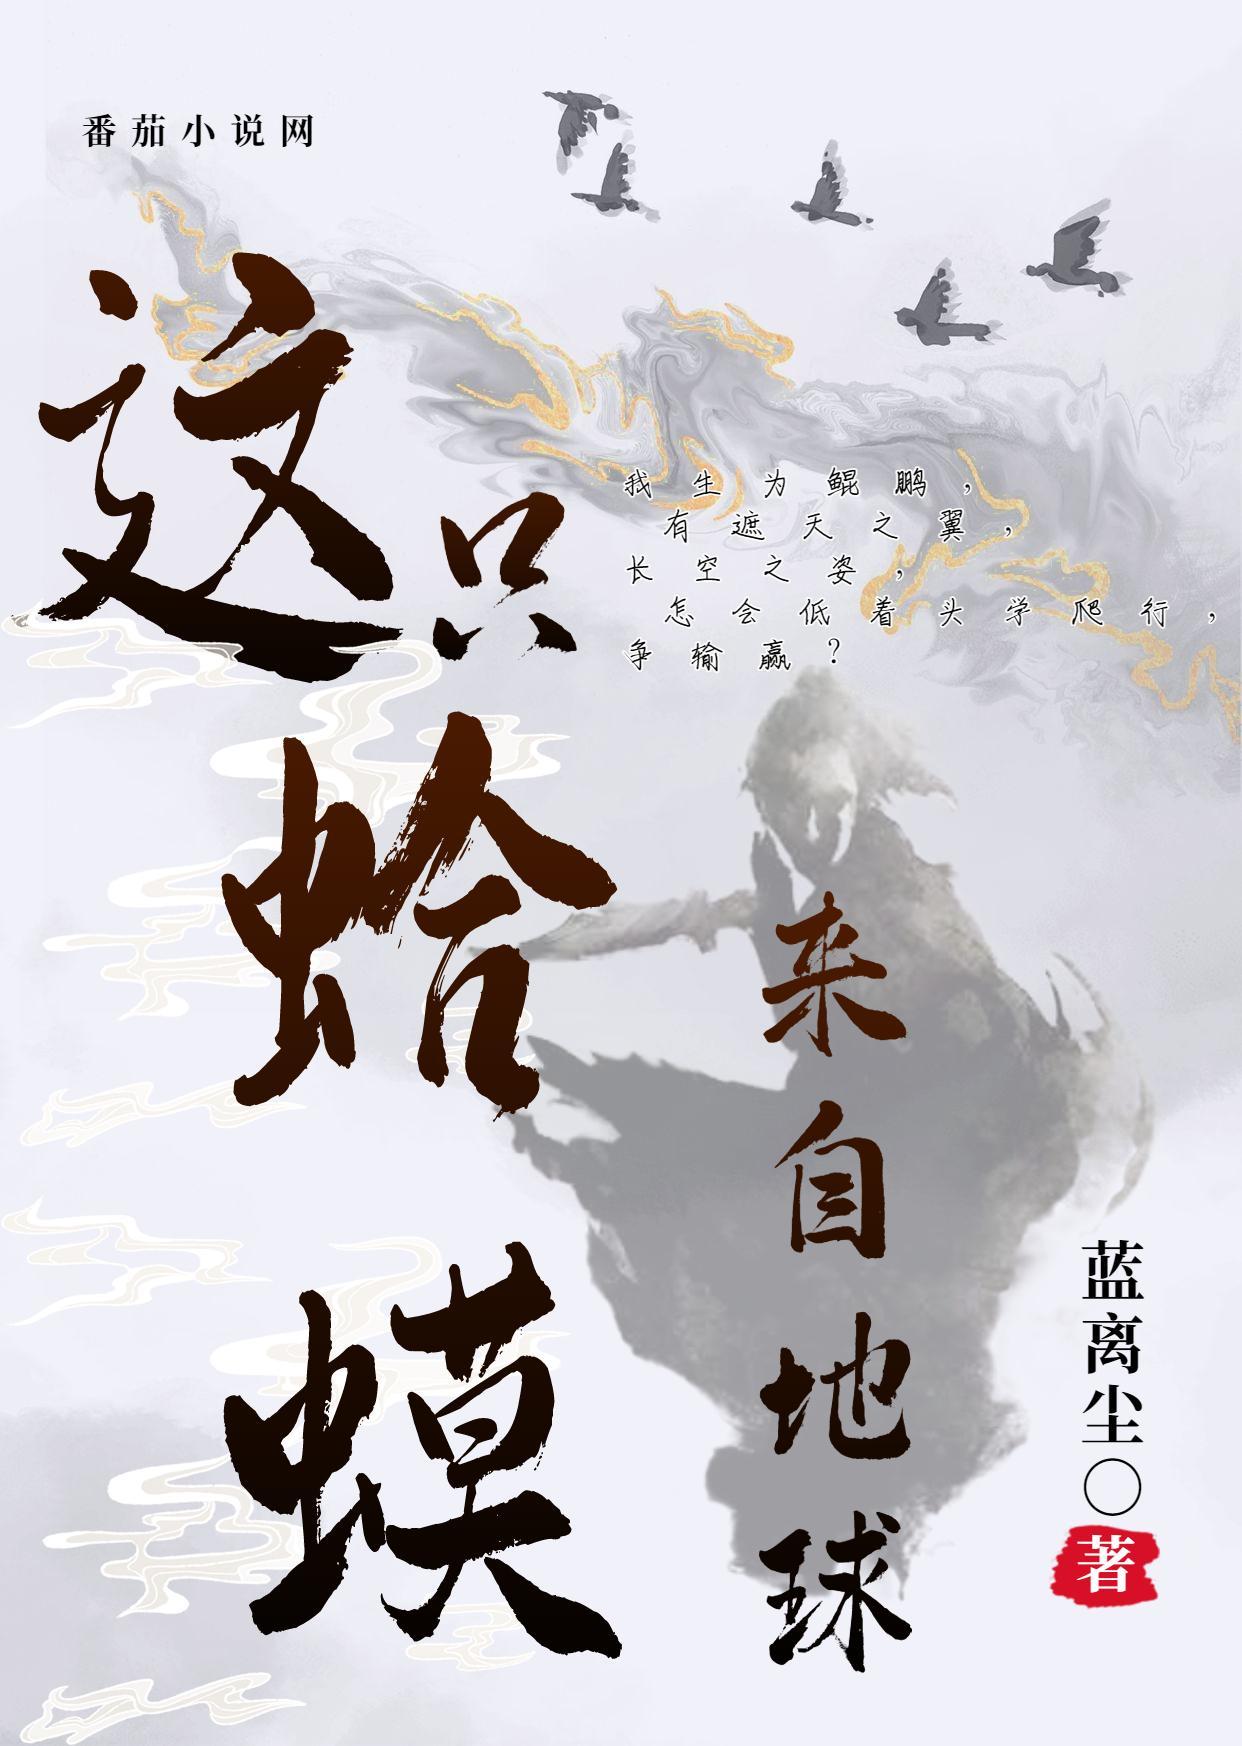 番茄小说网
这只蛤蟆
我生为鲲鹏，
有遮天之翼，
长空之姿，
怎会低着头学爬行，
争输赢？
来自地球
蓝离尘〇
著